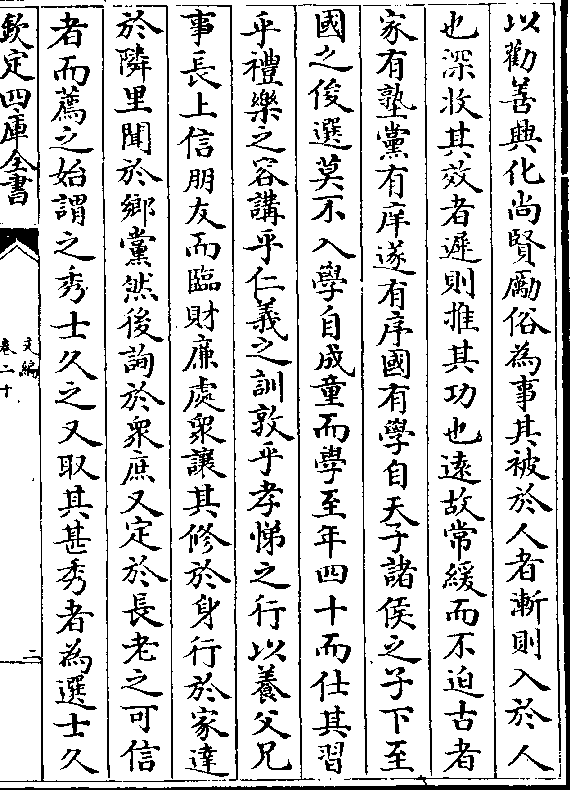 以勸善興化尚賢勵俗為事其被於人者漸則入於人
也深收其效者遲則推其功也遠故常緩而不迫古者
家有塾黨有庠遂有序國有學自天子諸侯之子下至
國之俊選莫不入學自成童而學至年四十而仕其習
乎禮樂之容講乎仁義之訓敦乎孝悌之行以養父兄
事長上信朋友而臨財廉處衆讓其修於身行於家達
於隣里聞於鄉黨然後詢於衆庶又定於長老之可信
者而薦之始謂之秀士久之又取其甚秀者為選士久
欽定四庫全書
文編
卷二十
二